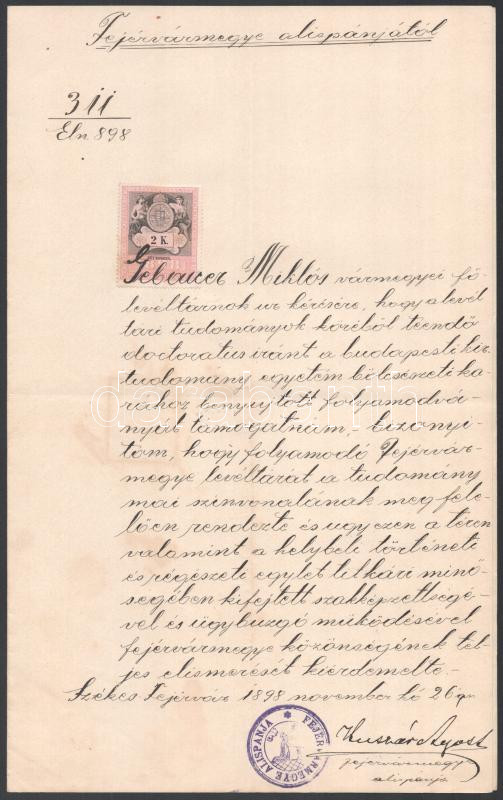 Fejérvármegye alispánjától
311
Eln. 898
2 K.
Gebauer Miklós vármegyei fő
levéltárnok ur kérésére, hogy a levél
tári tudományok köréből teendő
doctoratus iránt a budapesti kir.
tudomány egyetem bölcsészeti ka-
rához benyujtott folyamodvá-
nyát támogatnám, – bizonyi-
tom, hogy folyamodó Fejérvár-
megye levéltárát a tudomány
mai szinvonalának meg fele-
lően rendezte és ugyezen a téren
valamint a helybeli történeti
és régészeti egylet titkári minő-
ségében kifejtett szakképzettségé-
vel és ügybuzgó működésével
fejérvármegye közönségének tel-
jes elismerését kiérdemelte. –
Székes Fejérvár 1898 november hó 26 án
Huszár Agost
fejérvármegye
alispánja
FEJÉRVÁRMEGYE ALISPÁNJA
darabanth.com